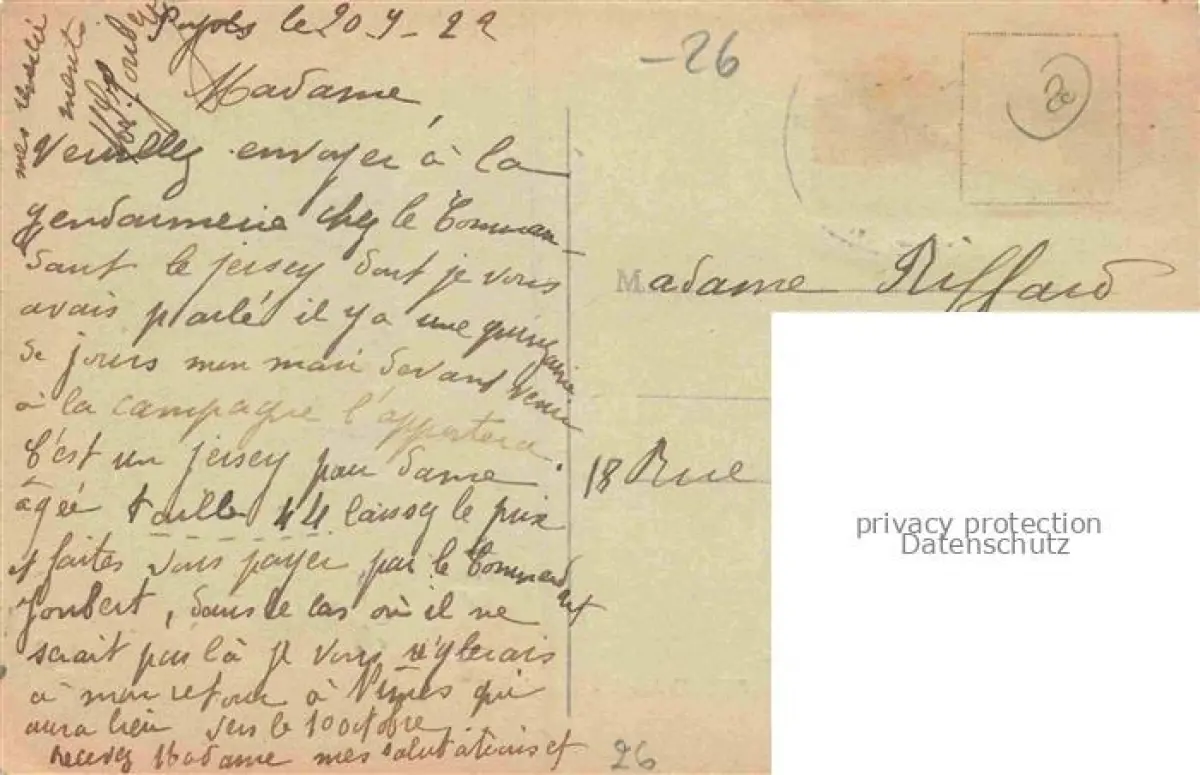 le 20 9 - 22
Madame
Veuillez envoyer à la
gendarmerie chez le Comman-
dant le jersey dont je vous
avais parlé il y a une quinzaine
de jours mon mari devant venir
à la campagne l'apportera.
C'est un jersey pour dame
âgée taille 44 laissez le prix
et faites vous payer par le Commandant
Joubert, dans le cas où il ne
serait pas là je vous réglerais
à mon retour à Nîmes qui
aura lieu vers le 10 octobre
recevez Madame mes salutations et
mes
ments
Joubert
-26
20
Madame Riffard
18 Rue
26
privacy protection
Datenschutz